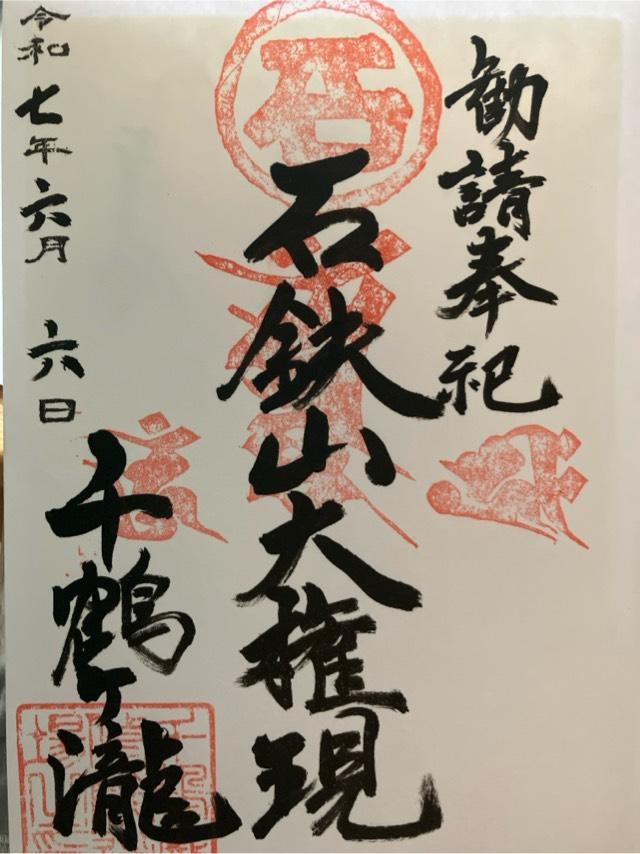 勧請奉祀
石
石鉄山大権現
千鶴ヶ瀧
令和七年六月六日